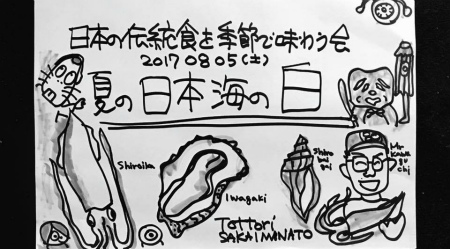 日本の伝統食を季節で味わう会
2017 08 05 (土)
夏の日本海の白
Shiroika
Iwagaki
Shiro
bai
gai
Mr
Kawa
gu
chi
Tottori
SAKAIMINATO